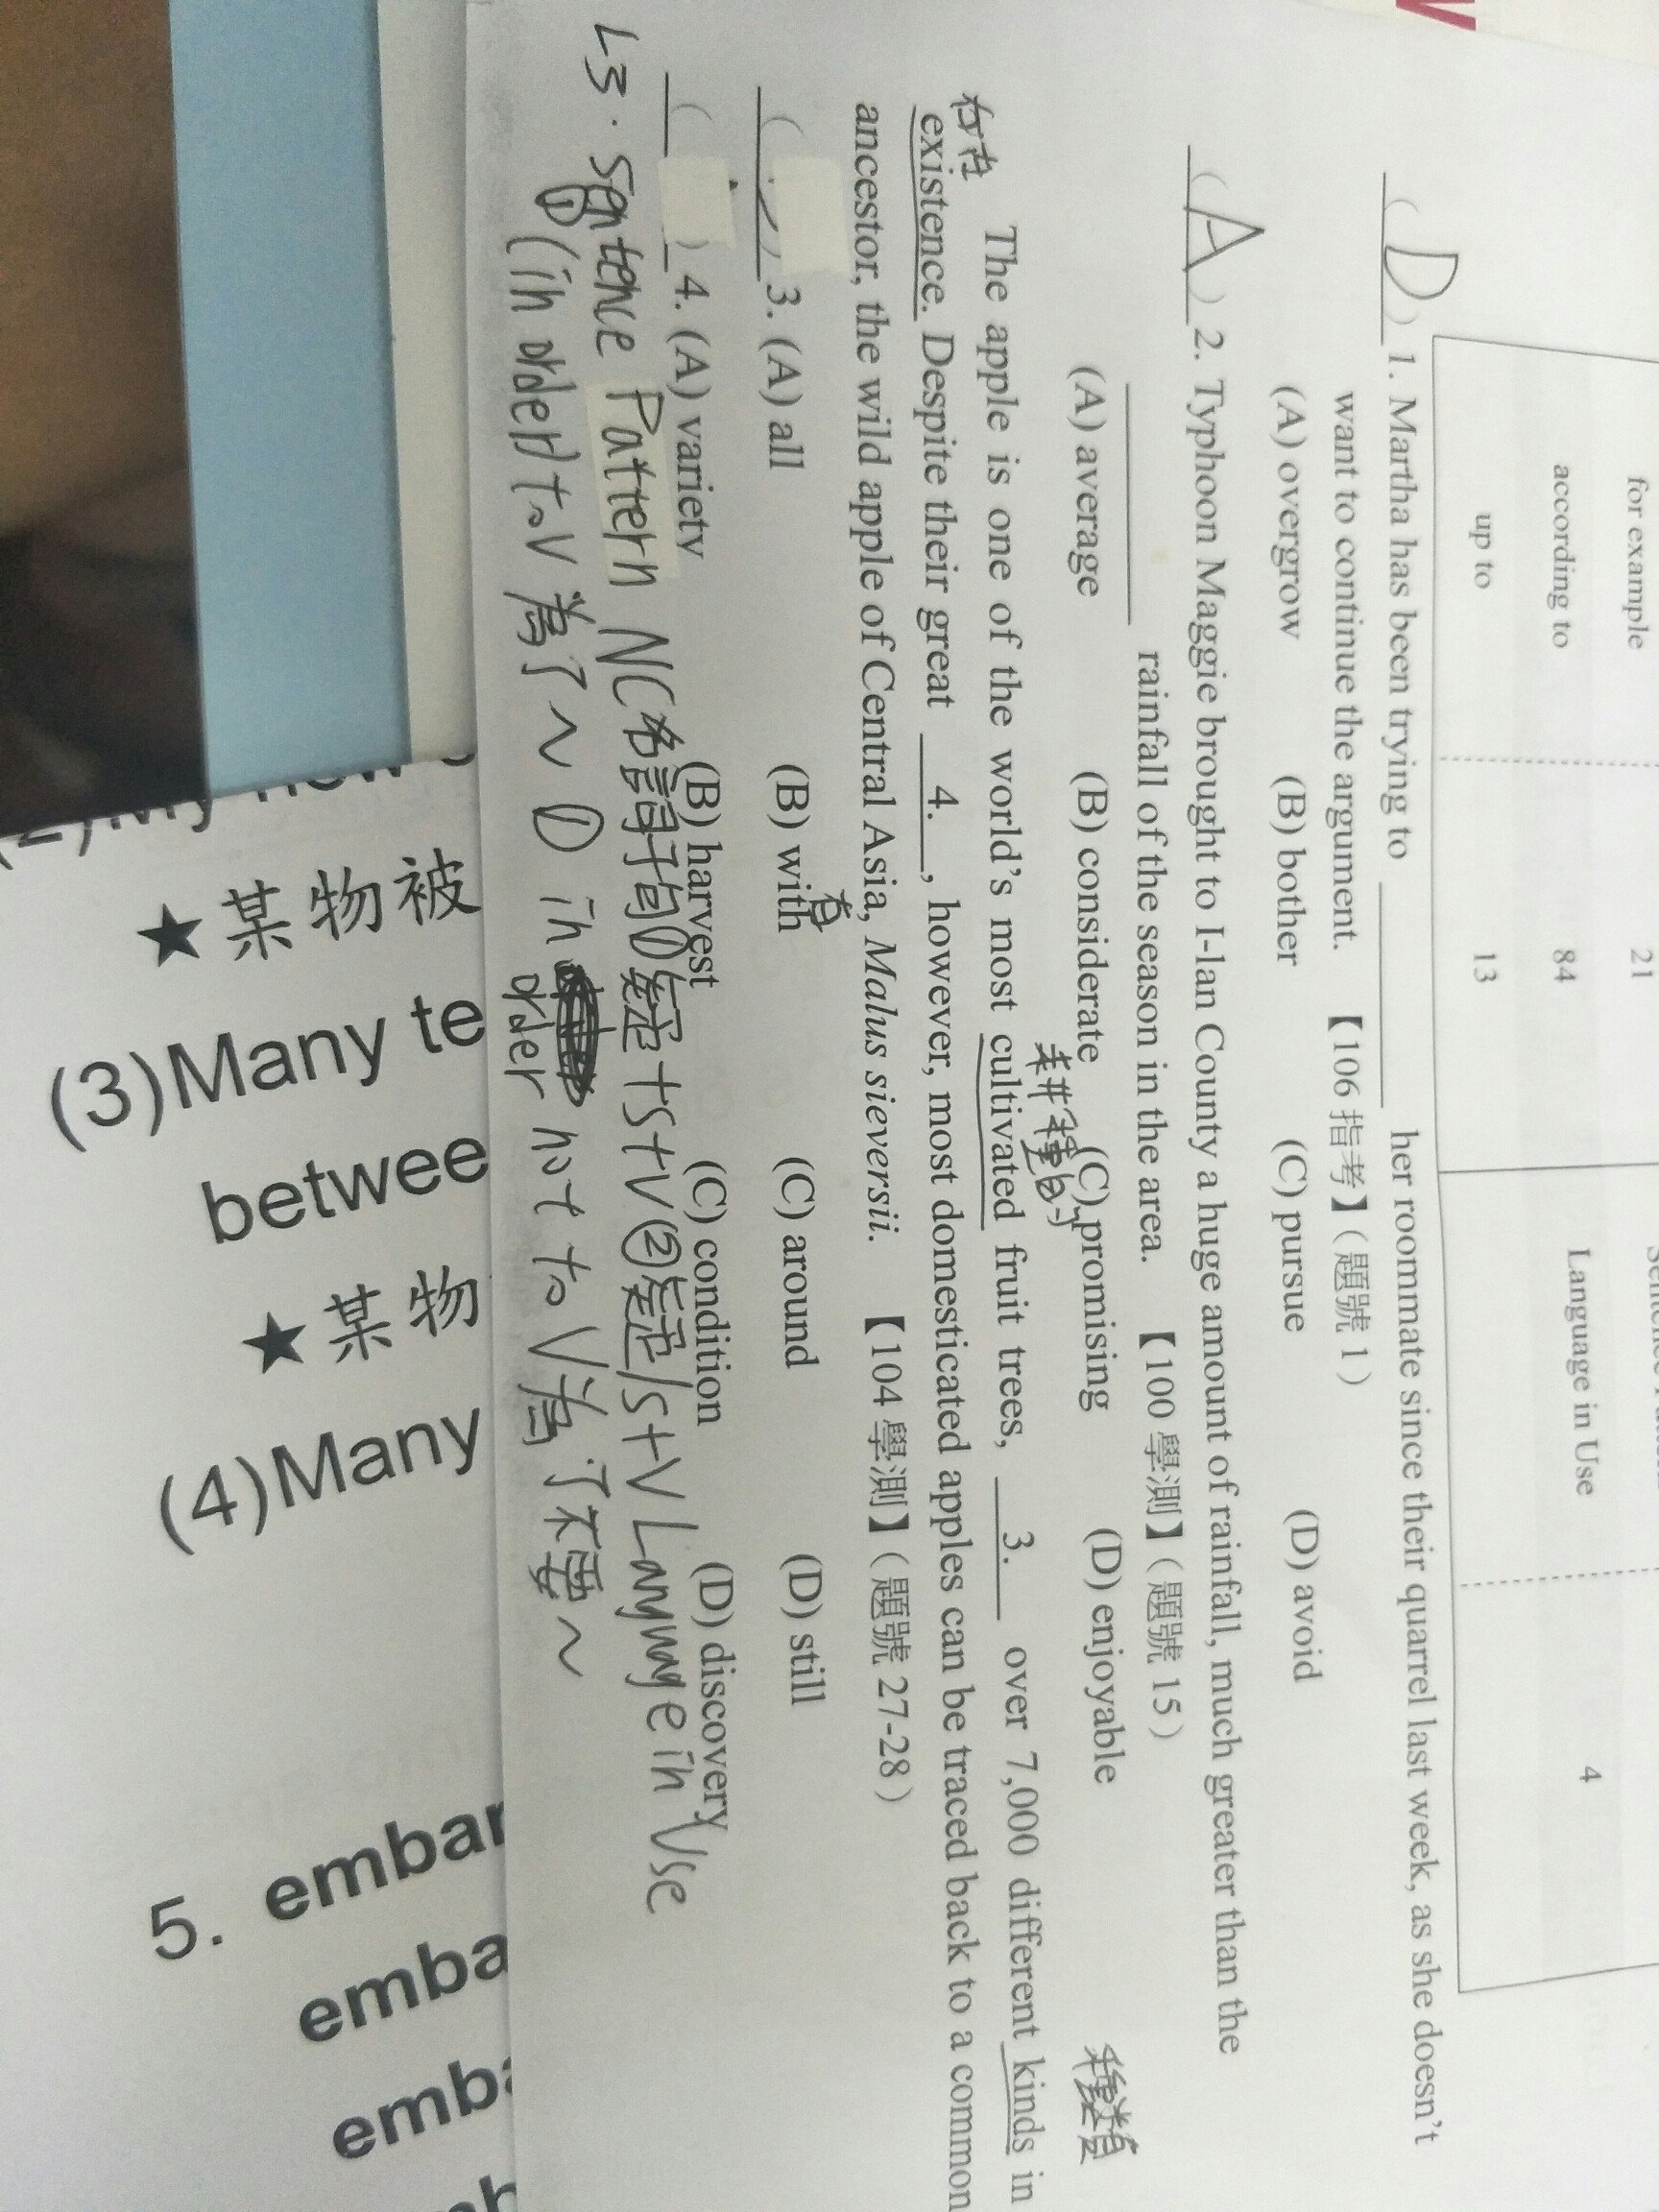 for example 21
according to 84 Language in Use 4
up to 13
( D ) 1. Martha has been trying to ________ her roommate since their quarrel last week, as she doesn't
want to continue the argument. 【106 指考】(題號 1)
(A) overgrow (B) bother (C) pursue (D) avoid
( A ) 2. Typhoon Maggie brought to I-lan County a huge amount of rainfall, much greater than the
________ rainfall of the season in the area. 【100 學測】(題號 15)
(A) average (B) considerate (C) promising (D) enjoyable
種類
The apple is one of the world's most cultivated fruit trees, 3. over 7,000 different kinds in
存在
existence. Despite their great 4. , however, most domesticated apples can be traced back to a common
ancestor, the wild apple of Central Asia, Malus sieversii. 【104 學測】(題號 27-28)
( ) 3. (A) all (B) with (C) around (D) still
有
( ) 4. (A) variety (B) harvest (C) condition (D) discovery
L3. Sentence Pattern NC名詞子句 +S+V ② /S+V Language in Use
①(in order) to V 為了~ ① in order not to V 為了不要~
★某物被
(3)Many te
betwee
★某物
(4)Many
5. embar
emba
emba